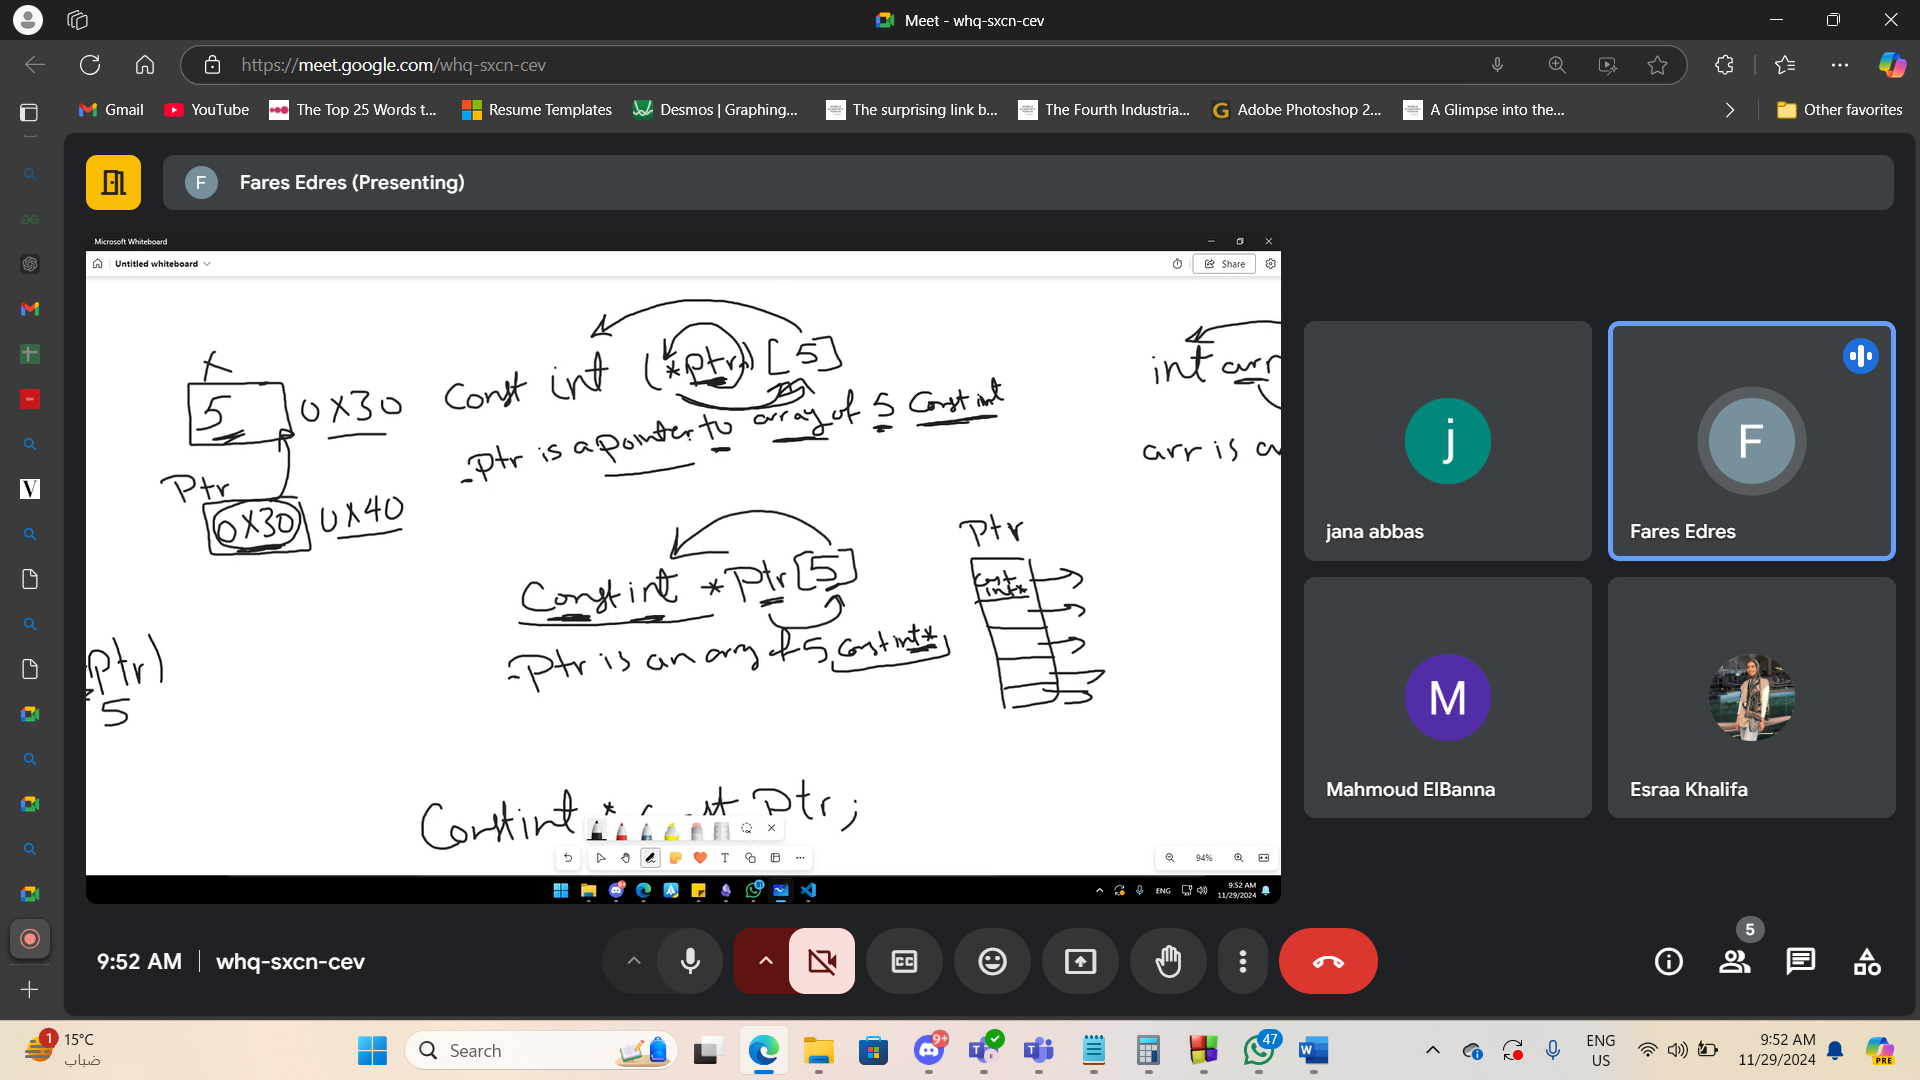 Meet - whq-sxcn-cev
https://meet.google.com/whq-sxcn-cev
Gmail YouTube The Top 25 Words t... Resume Templates Desmos | Graphing... The surprising link b... The Fourth Industria... Adobe Photoshop 2... A Glimpse into the... Other favorites
F Fares Edres (Presenting)
Microsoft Whiteboard
Untitled whiteboard Share
X
5 0X30
Const int (*ptr) [5]
-Ptr is a pointer to array of 5 Const int
int arr
arr is a
Ptr
0X30 0X40
Const int *Ptr[5]
-Ptr is an array of 5 const int*
ptr
Const int*
Ptr)
5
Const int * const Ptr;
94%
ENG 9:52 AM
11/29/2024
j
jana abbas
F
Fares Edres
M
Mahmoud ElBanna
Esraa Khalifa
9:52 AM whq-sxcn-cev
5
1 15°C
ضباب
Search
9+
47
ENG
US
9:52 AM
11/29/2024
PRE